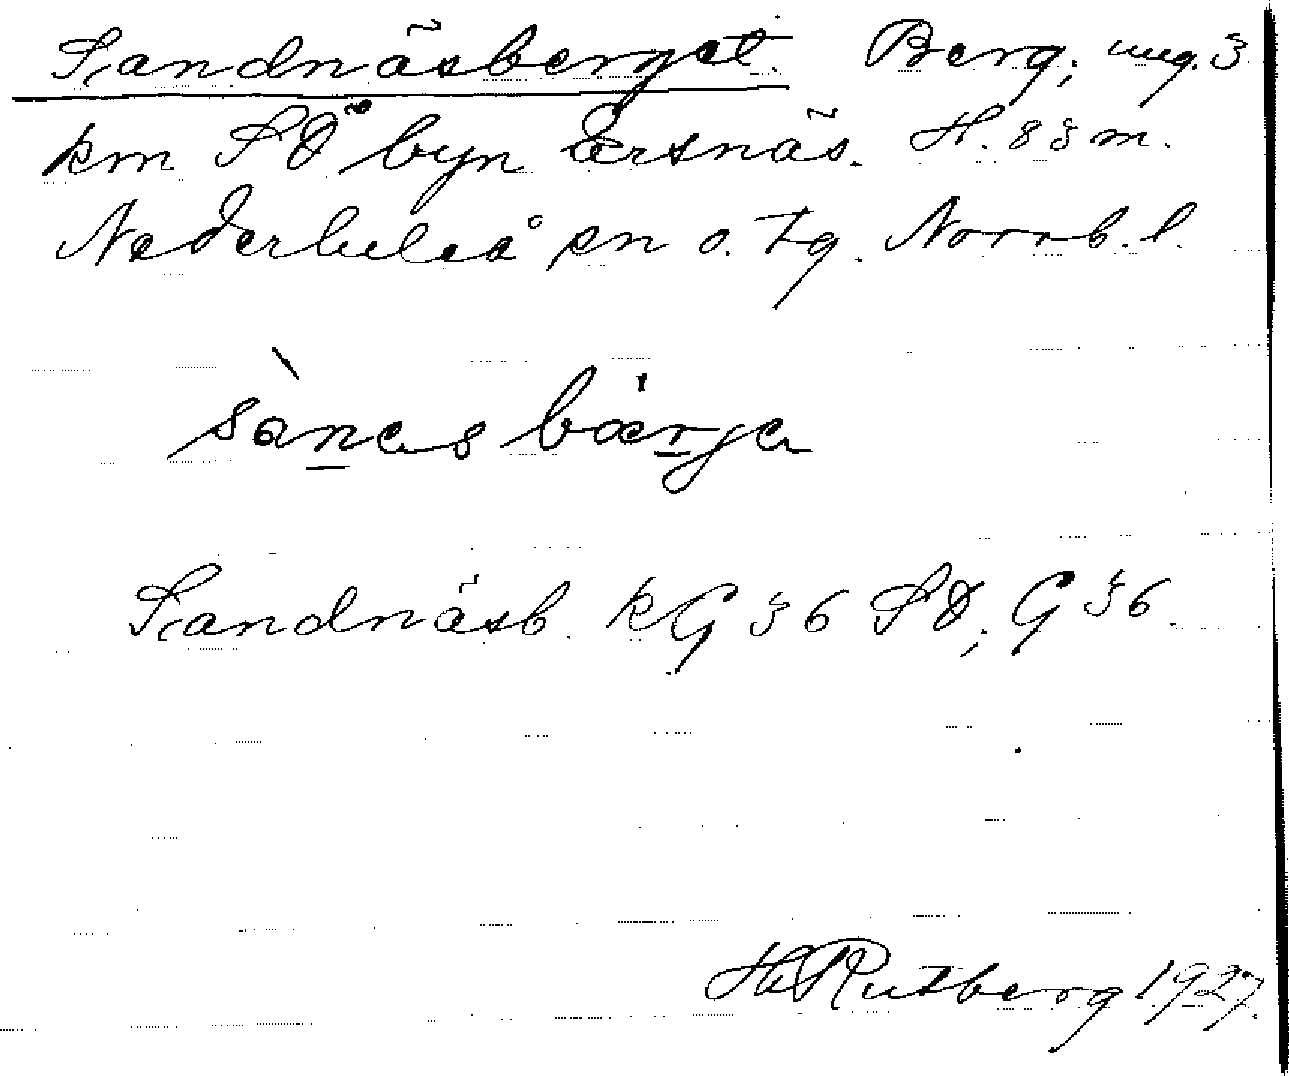 Sandnäsberget. Berg, ung. 3
km SÖ byn Ersnäs. H. 83 m.
Nederluleå sn o. tg. Norrb. l.
sànas bærjen
Sandnäsb. kG 36 SÖ; G 36.
H Rutberg 1927.